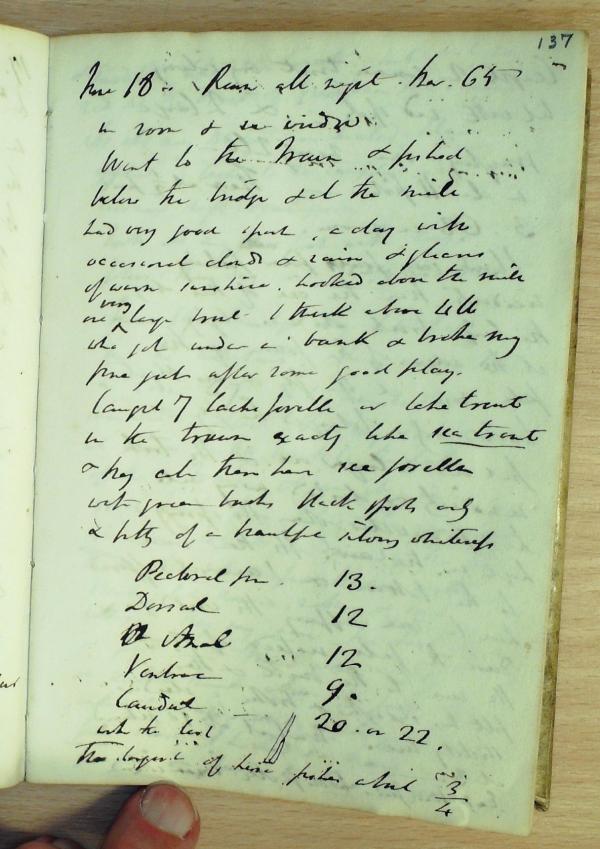 137
June 18. Rain all night. Bar. 65
in room & in window.
Went to the Traun & fished
below the bridge & at the mile
had very good sport, a day with
occasional clouds & rain & gleams
of warm sunshine. hooked above the mile
one very large trout I think above
who got under a bank & broke my
fine gut after some good play.
Caught 7 lachsforelle or lake trout
in the traun exactly like sea trout
& they call them here see forellen
with green backs black spots only
& belly of a beautiful silvery whiteness
Pectoral fin 13.
Dorsal 12
Anal 12
Ventral 9.
Caudal 20. or 22.
with the last
The largest of these fishes about 3/4